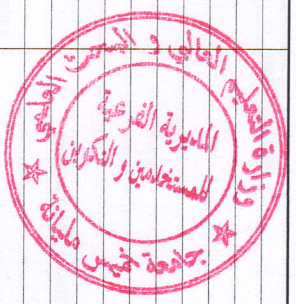 وزارة التعليم العالي و البحث العلمي
المديرية الفرعية
للمستخدمين و التكوين
جامعة خميس مليانة